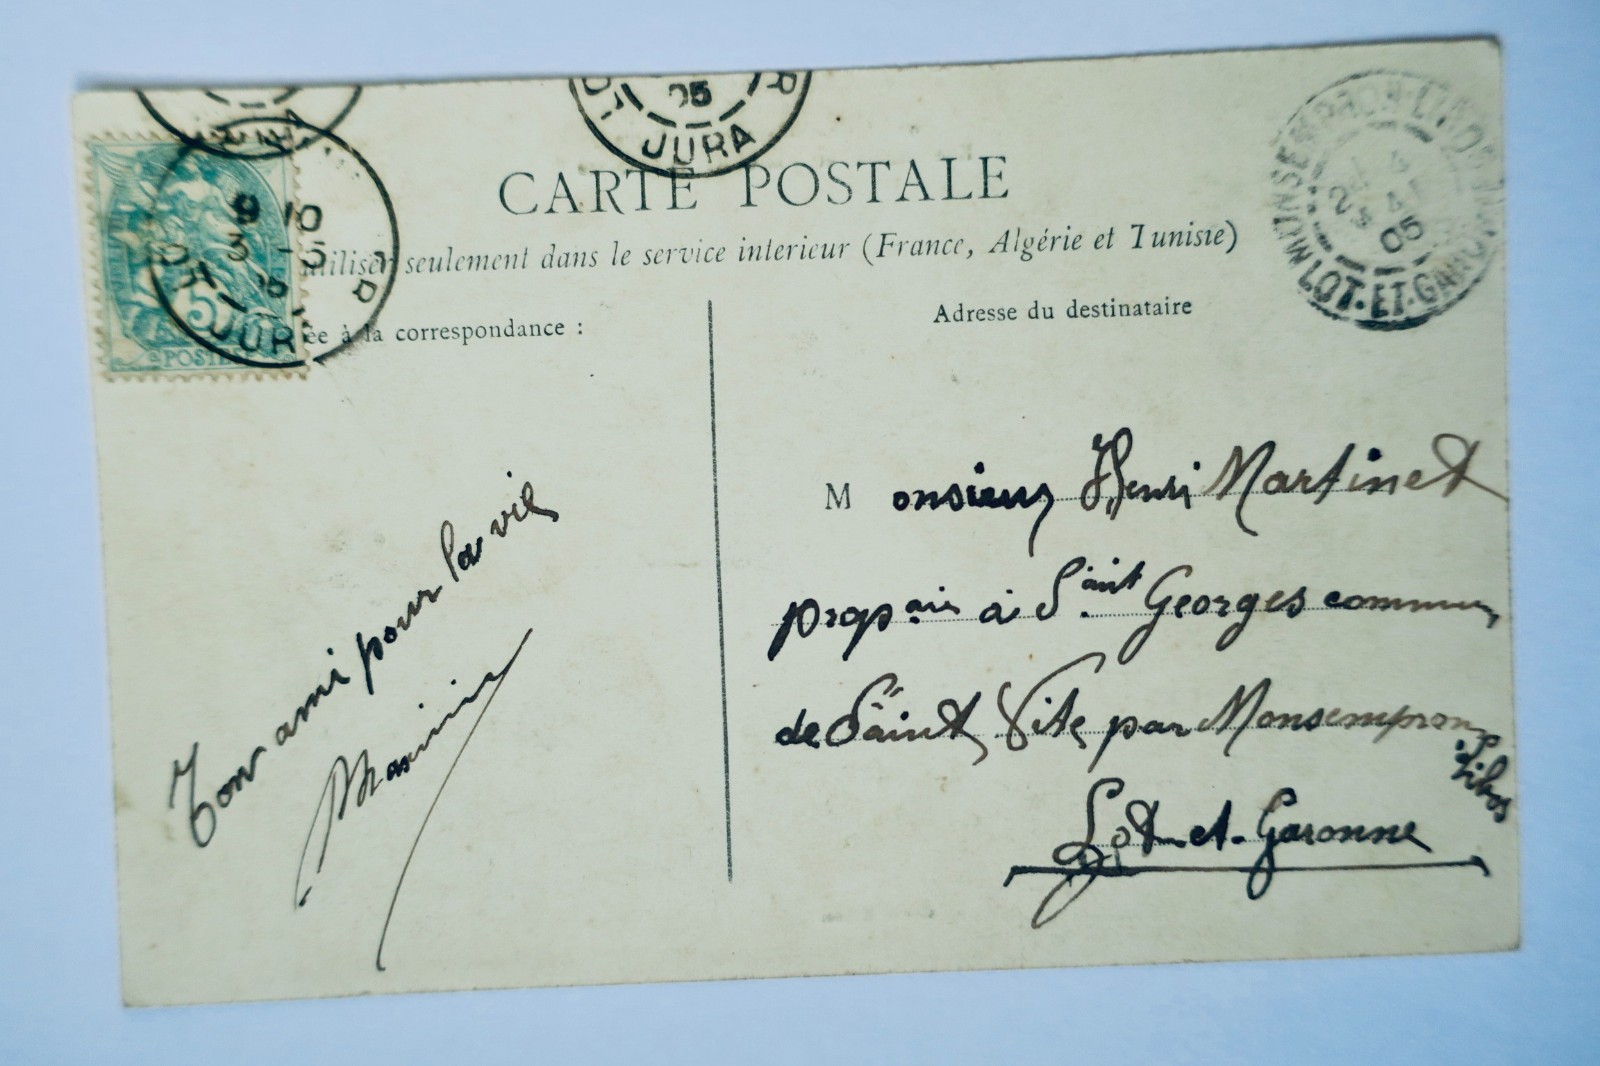 05
JURA
CARTE POSTALE
utiliser seulement dans le service interieur (France, Algérie et Tunisie)
ée à la correspondance :
Adresse du destinataire
9 10
3 -5
5
POSTES
JUR
MONSEMPRON-LIBOS
05
LOT-ET-GARONNE
Monsieur Henri Martinet
prop.aire à S.aint Georges commune
de Saint Vite par Monsempron
Libos
Lot-et-Garonne
Ton ami pour la vie